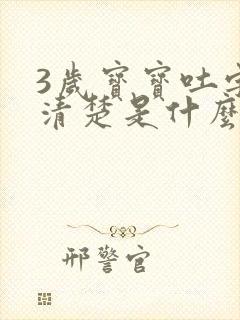 3歲寶寶吐字
清楚是什麼
邢警官